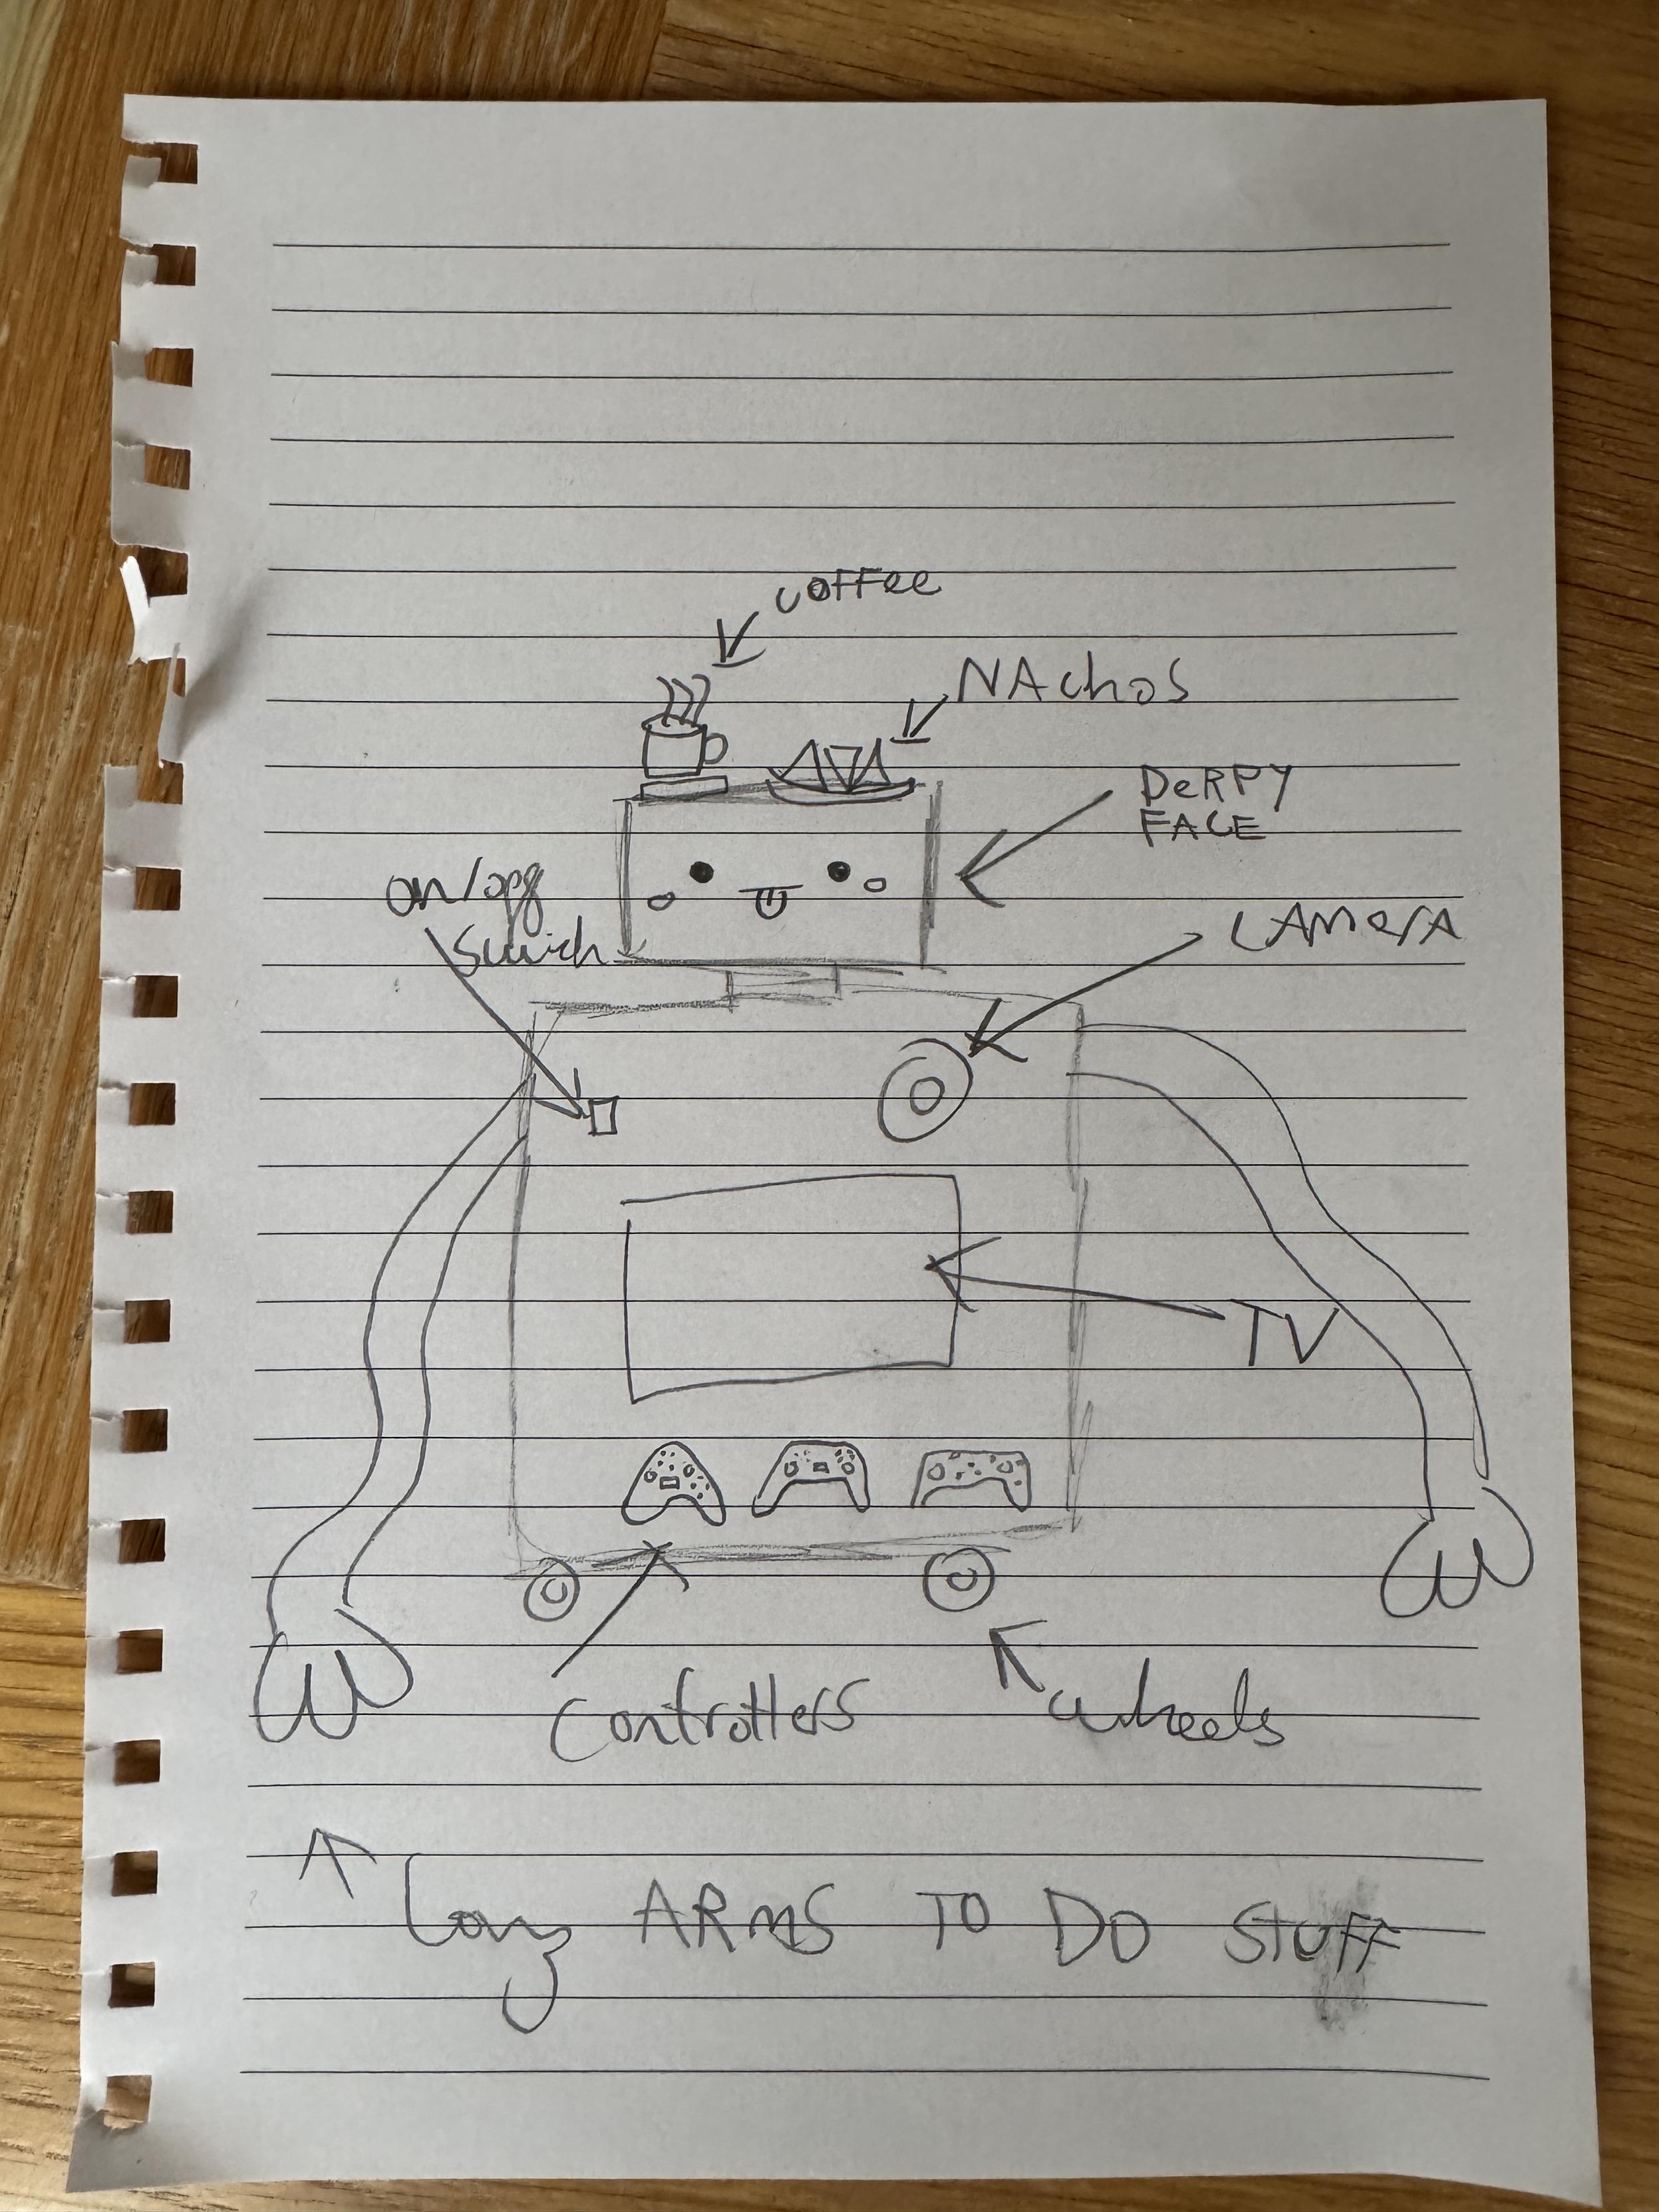 coffee
NAchos
DeRPY
FACE
on/off
swich
CAMerA
TV
Controllers
wheels
Long ARmS TO DO StuFF